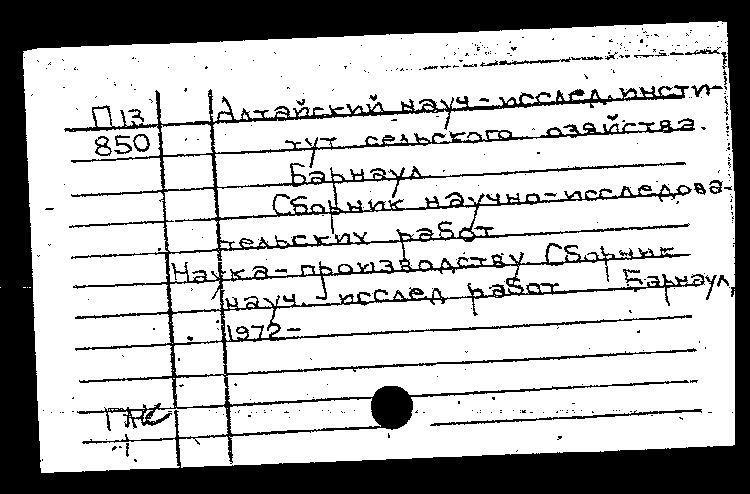 П13 Алтайский науч-исслед. инсти-
850 тут сельского озяйства.
Барнаул
Сборник научно-исследова-
тельских работ
Наука-производству Сборник
науч.-исслед работ Барнаул,
1972-
ГАК